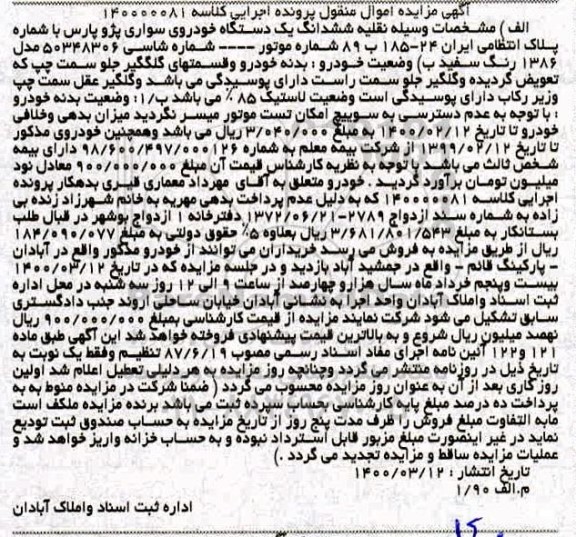 آگهی مزایده اموال منقول پرونده اجرایی کلاسه ۱۴۰۰۰۰۰۸۱
الف ) مشخصات وسیله نقلیه ششدانگ یک دستگاه خودروی سواری پژو پارس با شماره
پلاک انتظامی ایران ۲۴-۱۸۵ ب ۸۹ شماره موتور ---- شماره شاسی ۵۰۳۴۸۳۰۶ مدل
۱۳۸۶ رنگ سفید ب) وضعیت خودرو : بدنه خودرو وقسمتهای گلگگیر جلو سمت چپ که
تعویض گردیده وگلگیر جلو سمت راست دارای پوسیدگی می باشد وگلگیر عقل سمت چپ
وزیر رکاب دارای پوسیدگی است وضعیت لاستیک ۸۵ ٪ می باشد ب/۱: وضعیت بدنه خودرو
: با توجه به عدم دسترسی به سوییچ امکان تست موتور میسر نگردید میزان بدهی وخلافی
خودرو تا تاریخ ۱۴۰۰/۰۲/۱۲ به مبلغ ۳/۰۴۰/۰۰۰ ریال می باشد وهمچنین خودروی مذکور
تا تاریخ ۱۳۹۹/۰۲/۱۲ از شرکت بیمه معلم به شماره ۹۸/۶۰۰/۴۹۷/۰۰۰۱۲۶ دارای بیمه
شخص ثالث می باشد با توجه به نظریه کارشناس قیمت آن مبلغ ۹۰۰/۰۰۰/۰۰۰ معادل نود
میلیون تومان برآورد گردید . خودرو متعلق به آقای مهرداد معماری قیری بدهکار پرونده
اجرایی کلاسه ۱۴۰۰۰۰۰۸۱ که به دلیل عدم پرداخت بدهی مهریه به خانم شهرزاد زنده بی
زاده به شماره سند ازدواج ۲۷۸۹-۱۳۷۲/۰۶/۲۱ دفترخانه ۱ ازدواج بوشهر در قبال طلب
بستانکار به مبلغ ۳/۶۸۱/۸۰۱/۵۴۳ ریال بعلاوه ۵٪ حقوق دولتی به مبلغ ۱۸۴/۰۹۰/۰۷۷
ریال از طریق مزایده به فروش می رسد خریداران می توانند از خودرو مذکور واقع در آبادان
- پارکینگ قائم - واقع در جمشید آباد بازدید و در جلسه مزایده که در تاریخ ۱۴۰۰/۰۳/۱۲
بیست وپنجم خرداد ماه سال هزارو چهارصد از ساعت ۹ الی ۱۲ روز سه شنبه در محل اداره
ثبت اسناد واملاک آبادان واحد اجرا به نشانی آبادان خیابان ساحلی اروند جنب دادگستری
سابق تشکیل می شود شرکت نمایند مزایده از قیمت کارشناسی بمبلغ ۹۰۰/۰۰۰/۰۰۰ ریال
نهصد میلیون ریال شروع و به بالاترین قیمت پیشنهادی فروخته خواهد شد این آگهی طبق ماده
۱۲۱ و۱۲۲ آئین نامه اجرای مفاد اسناد رسمی مصوب ۸۷/۶/۱۹ تنظیم وفقط یک نوبت به
تاریخ ذیل در روزنامه منتشر می گردد وچنانچه روز مزایده به هر دلیلی تعطیل اعلام شد اولین
روز کاری بعد از آن به عنوان روز مزایده محسوب می گردد ( ضمنا شرکت در مزایده منوط به به
پرداخت ده درصد مبلغ پایه کارشناسی بحساب سپرده ثبت می باشد برنده مزایده ملکف است
مابه التفاوت مبلغ فروش را ظرف مدت پنج روز از تاریخ مزایده به حساب صندوق ثبت تودیع
نماید در غیر اینصورت مبلغ مزبور قابل استرداد نبوده و به حساب خزانه واریز خواهد شد و
عملیات مزایده ساقط و مزایده تجدید می گردد .)
تاریخ انتشار : ۱۴۰۰/۰۳/۱۲
م.الف ۱/۹۰
اداره ثبت اسناد واملاک آبادان